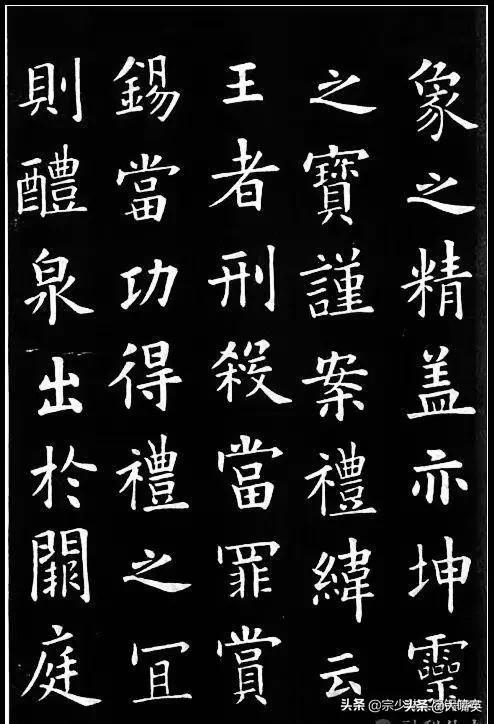 象之精盖亦坤靈
之寶謹案禮緯云
王者刑殺當罪賞
錫當功得禮之冝
則醴泉出於闕庭